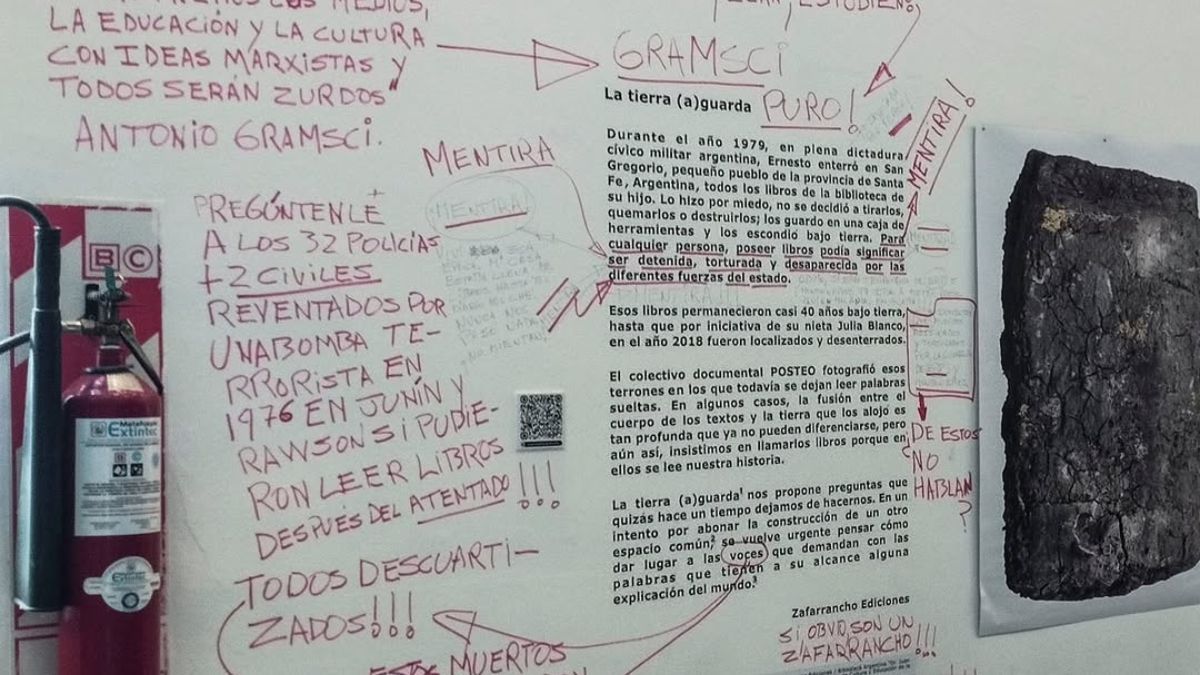 LOS MEDIOS,
LA EDUCACIÓN Y LA CULTURA
CON IDEAS MARXISTAS Y
TODOS SERÁN ZURDOS"
ANTONIO GRAMSCI.
ESTUDIEN!
GRAMSCI
PURO!
MENTIRA
MENTIRA!
MENTIRA!
PREGÚNTENLE
A LOS 32 POLICÍAS
+2 CIVILES
REVENTADOS POR
UNA BOMBA TE-
RRORISTA EN
1976 EN JUNÍN Y
RAWSON SI PUDIE-
RON LEER LIBROS
DESPUÉS DEL ATENTADO!!!
TODOS DESCUARTI-
ZADOS!!!
ESTOS MUERTOS
NO MIENTAN
La tierra (a)guarda
Durante el año 1979, en plena dictadura
cívico militar argentina, Ernesto enterró en San
Gregorio, pequeño pueblo de la provincia de Santa
Fe, Argentina, todos los libros de la biblioteca de
su hijo. Lo hizo por miedo, no se decidió a tirarlos,
quemarlos o destruirlos; los guardo en una caja de
herramientas y los escondió bajo tierra. Para
cualquier persona, poseer libros podía significar
ser detenida, torturada y desaparecida por las
diferentes fuerzas del estado.
Esos libros permanecieron casi 40 años bajo tierra,
hasta que por iniciativa de su nieta Julia Blanco,
en el año 2018 fueron localizados y desenterrados.
El colectivo documental POSTEO fotografió esos
terrones en los que todavía se dejan leer palabras
sueltas. En algunos casos, la fusión entre el
cuerpo de los textos y la tierra que los alojo es
tan profunda que ya no pueden diferenciarse, pero
aún así, insistimos en llamarlos libros porque en
ellos se lee nuestra historia.
La tierra (a)guarda¹ nos propone preguntas que
quizás hace un tiempo dejamos de hacernos. En un
intento por abonar la construcción de un otro
espacio común,² se vuelve urgente pensar cómo
dar lugar a las voces que demandan con las
palabras que tienen a su alcance alguna
explicación del mundo.³
Zafarrancho Ediciones
SI, OBVIO, SON UN
ZAFARRANCHO!!!
¿DE ESTOS
NO
HABLAN
?
BC
Matafuegos
Extintec
Extintec